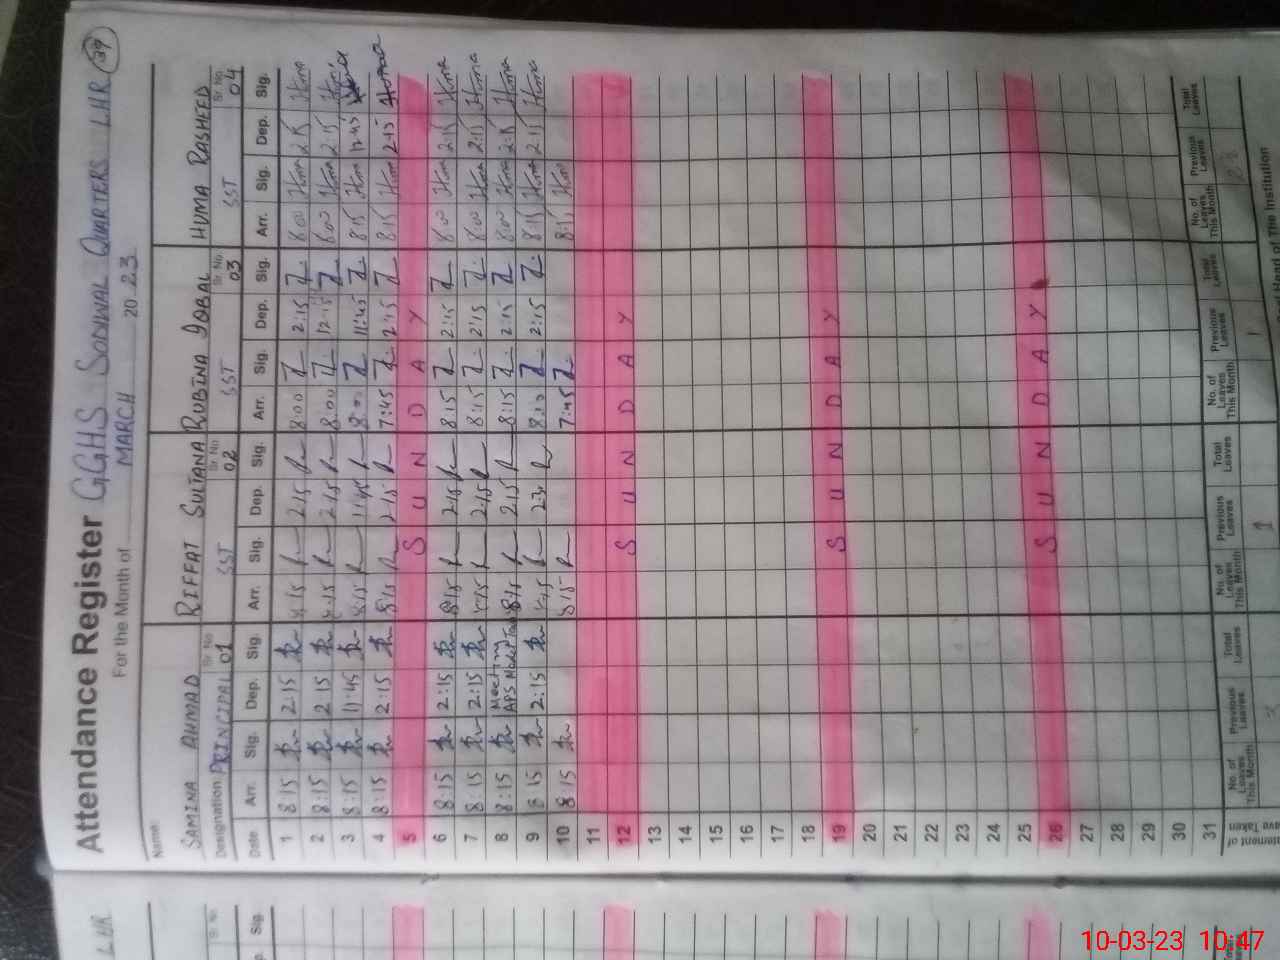 Attendance Register GGHS SONWAL QUARTERS LHR 29
For the Month of MARCH 20 23
Name: SAMINA AHMAD RIFFAT SULTANA RUBINA IQBAL HUMA RASHEED
Designation PRINCIPAL Sr No 01 SST Sr No 02 SST Sr No 03 SST Sr No 04
Date Arr. Sig. Dep. Sig. Arr. Sig. Dep. Sig. Arr. Sig. Dep. Sig. Arr. Sig. Dep. Sig.
1 8:15 2:15 8:15 2:15 8:00 2:15 8:00 Huma 2:15 Huma
2 8:15 2:15 8:15 2:15 8:00 12:15 8:00 Huma 2:15 Huma
3 8:15 11:45 8:15 11:45 8:00 11:45 8:15 Huma 11:45 Huma
4 8:15 2:15 8:15 2:15 7:45 2:15 8:15 Huma 2:15 Huma
5 S U N D A Y
6 8:15 2:15 8:15 2:15 8:15 2:15 8:00 Huma 2:15 Huma
7 8:15 2:15 8:15 2:15 8:15 2:15 8:00 Huma 2:15 Huma
8 8:15 Meeting APS Model 8:15 2:15 8:15 2:15 8:00 Huma 2:15 Huma
9 8:15 2:15 8:15 2:30 8:10 2:15 8:15 Huma 2:15 Huma
10 8:15 8:15 7:45 8:15 Huma
11
12 S U N D A Y
13
14
15
16
17
18
19 S U N D A Y
20
21
22
23
24
25
26 S U N D A Y
27
28
29
30
31
No. of Leaves This Month Previous Leaves Total Leaves No. of Leaves This Month Previous Leaves Total Leaves No. of Leaves This Month Previous Leaves Total Leaves No. of Leaves This Month Previous Leaves Total Leaves
Head of The Institution
LHR
Sr. No.
Sig.
10-03-23 10:47